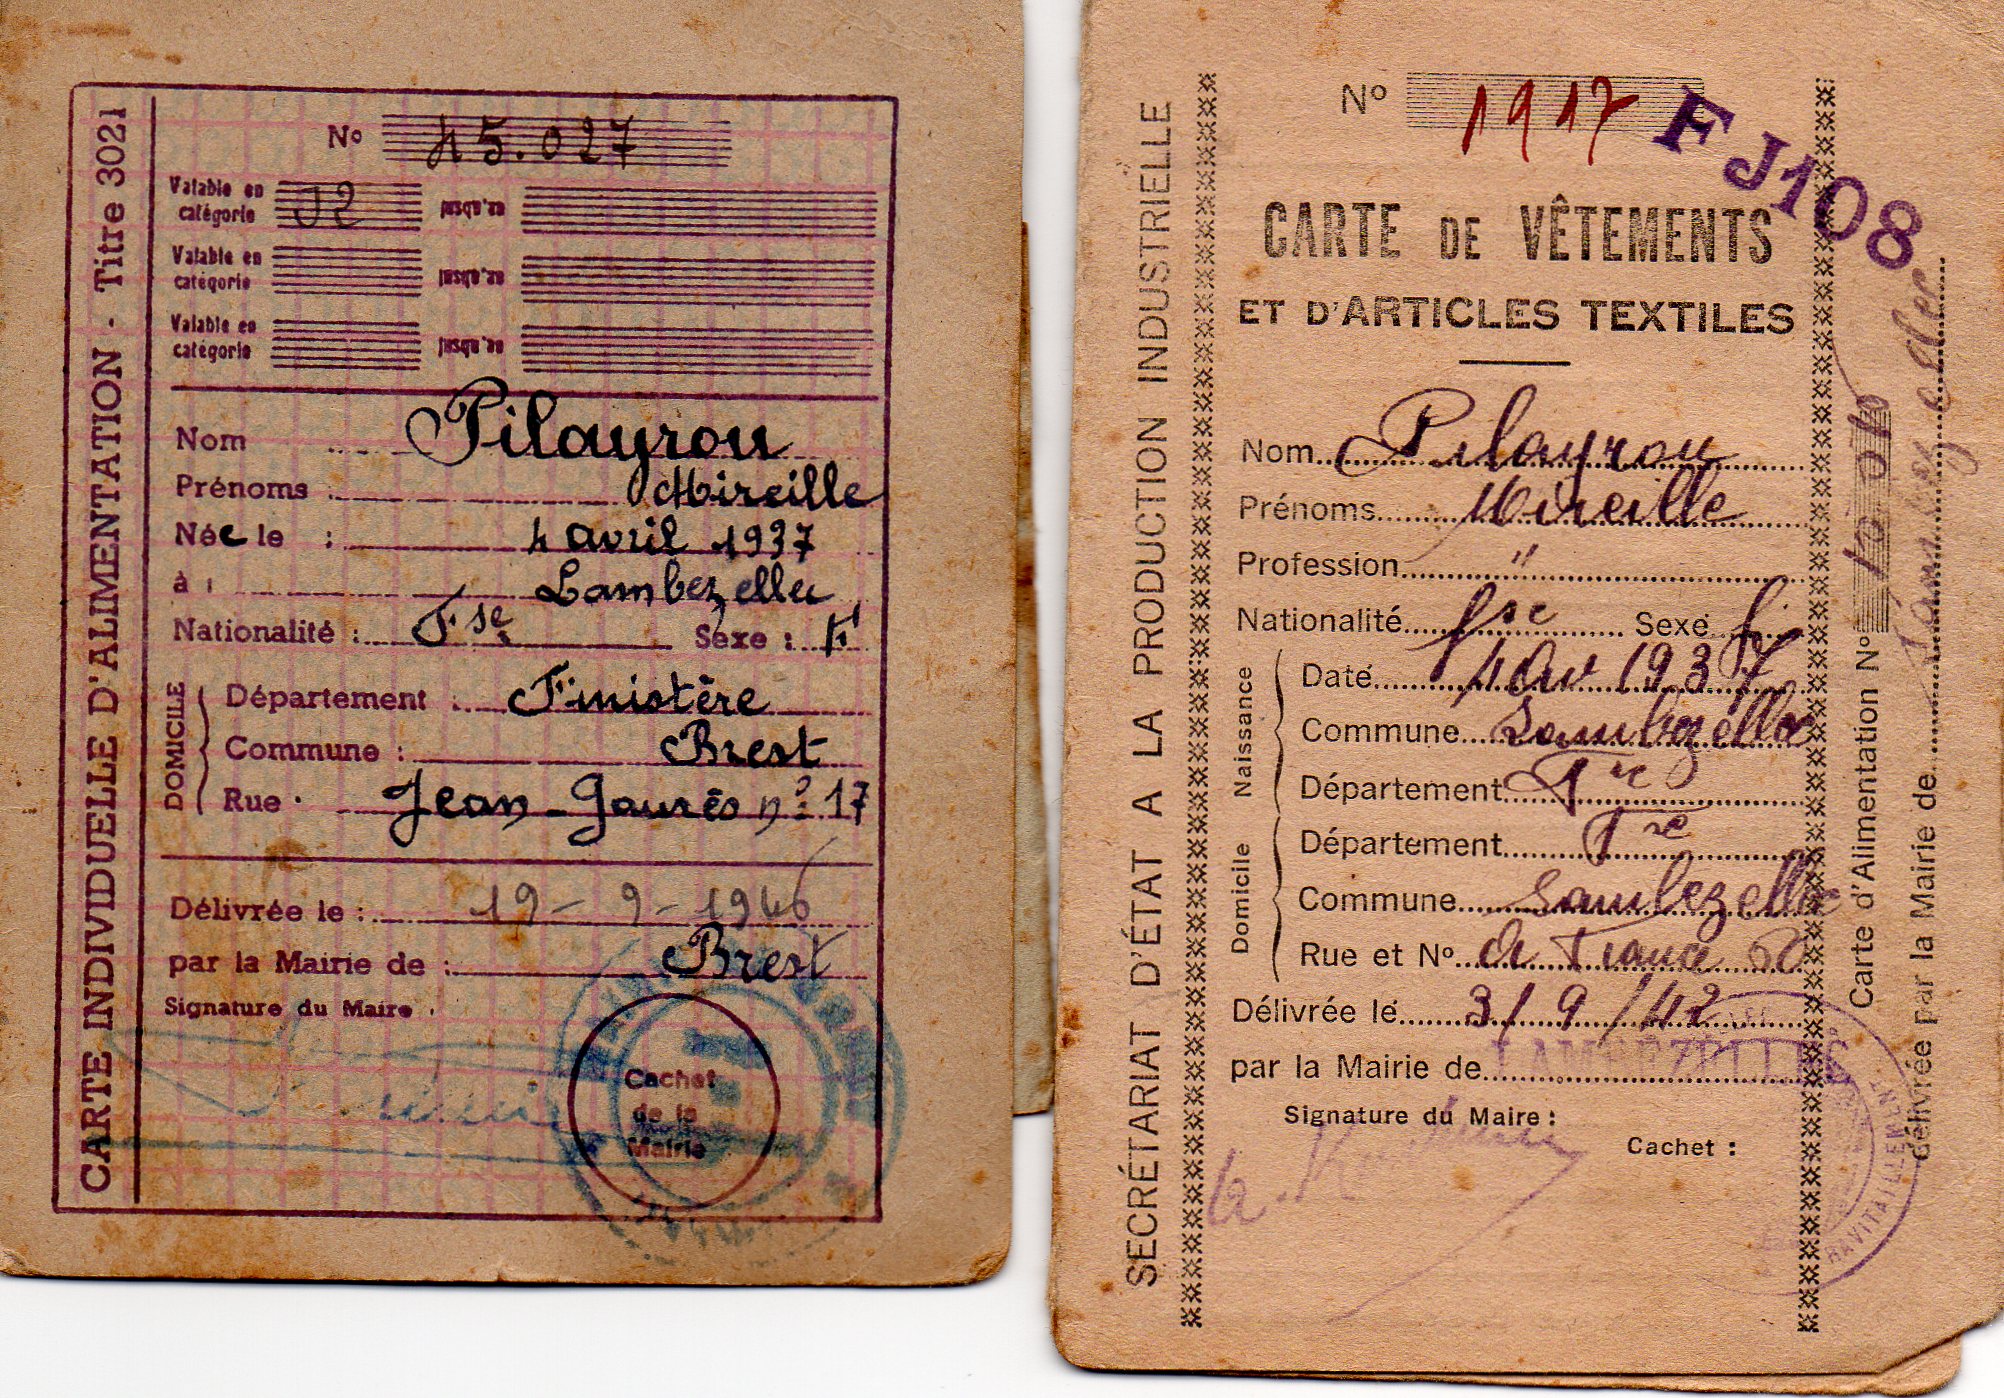 CARTE INDIVIDUELLE D'ALIMENTATION - Titre 3021
No 45.027
Valable en catégorie J2 jusqu'au
Valable en catégorie jusqu'au
Valable en catégorie jusqu'au
Nom Pilayrou
Prénoms : Mireille
Née le : 4 avril 1937
à : Lambezellec
Nationalité : Fse Sexe : F
DOMICILE
Département : Finistère
Commune : Brest
Rue Jean-Jaurès no 17
Délivrée le : 19-9-1946
par la Mairie de : Brest
Signature du Maire
Cachet
de la
Mairie
SECRÉTARIAT D'ÉTAT A LA PRODUCTION INDUSTRIELLE
No 1917
FJ108
CARTE DE VÊTEMENTS
ET D'ARTICLES TEXTILES
Nom Pilayrou
Prénoms Mireille
Profession "
Nationalité fse Sexe f
Naissance
Date 4 av 1937
Commune Lambezellec
Département Fre
Domicile
Département Fre
Commune Lambezellec
Rue et No de France 60
Délivrée le 3/9/42
par la Mairie de LAMBÉZELLEC
Signature du Maire :
Cachet :
RAVITAILLEMENT
Carte d'Alimentation No
délivrée par la Mairie de Lambezellec